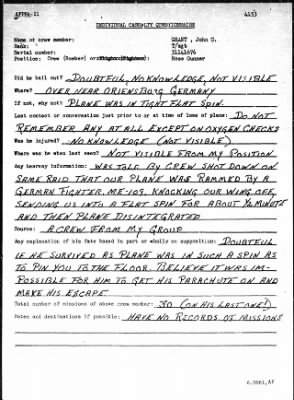 AFPPA-11 4153
INDIVIDUAL CASUALTY QUESTIONNAIRE
Name of crew member: GRANT, John G.
Rank: T/Sgt
Serial number: 31141676
Position: Crew (Bomber) Nose Gunner
Did he bail out? DOUBTFUL, NO KNOWLEDGE, NOT VISIBLE
Where? OVER NEAR ORIENSBURG GERMANY
If not, why not? PLANE WAS IN TIGHT FLAT SPIN.
Last contact or conversation just prior to or at time of loss of plane: DO NOT
REMEMBER ANY AT ALL EXCEPT ON OXYGEN CHECKS
Was he injured? NO KNOWLEDGE (NOT VISIBLE)
Where was he when last seen? NOT VISIBLE FROM MY POSITION
Any hearsay information: WAS TOLD BY CREW SHOT DOWN ON
SAME RAID THAT OUR PLANE WAS RAMMED BY A
GERMAN FIGHTER, ME-109, KNOCKING OUR WING OFF,
SENDING US INTO A FLAT SPIN FOR ABOUT ½ MINUTE
AND THEN PLANE DISINTEGRATED
Source: A CREW FROM MY GROUP
Any explanation of his fate based in part or wholly on supposition: DOUBTFUL
IF HE SURVIVED AS PLANE WAS IN SUCH A SPIN AS
TO PIN YOU TO THE FLOOR. BELIEVE IT WAS IM-
POSSIBLE FOR HIM TO GET HIS PARACHUTE ON AND
MAKE HIS ESCAPE
Total number of missions of above crew member: 30 (ON HIS LAST ONE!)
Dates and destinations if possible: HAVE NO RECORDS OF MISSIONS